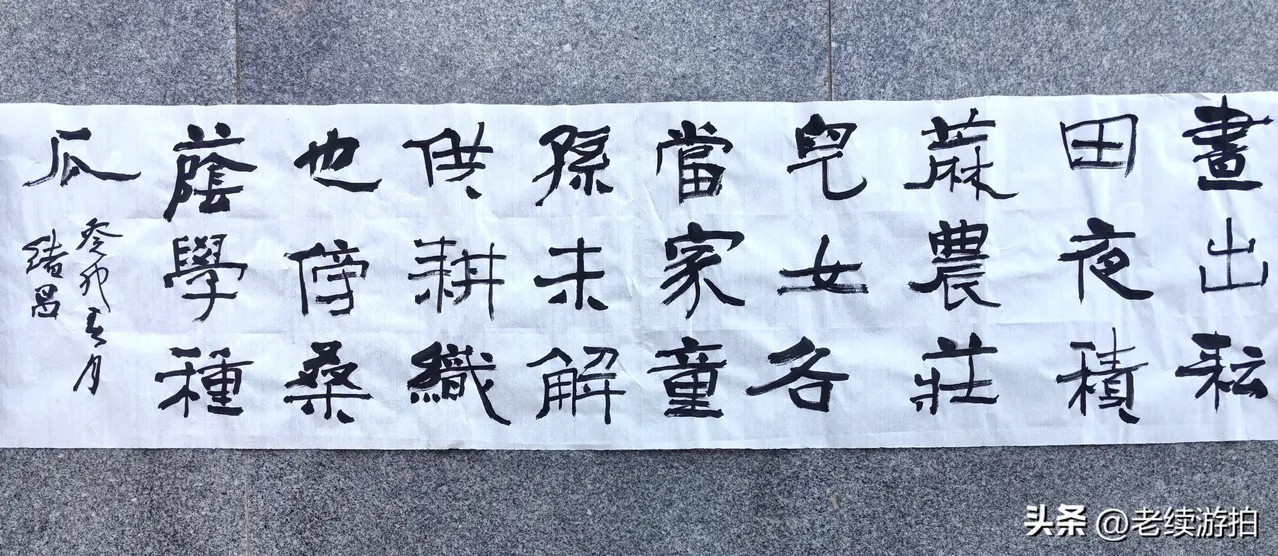 晝出耘
田夜積
蔴農莊
兒女各
當家童
孫未解
供耕織
也傍桑
蔭學種
瓜
癸卯月
昌
头条 @老续游拍